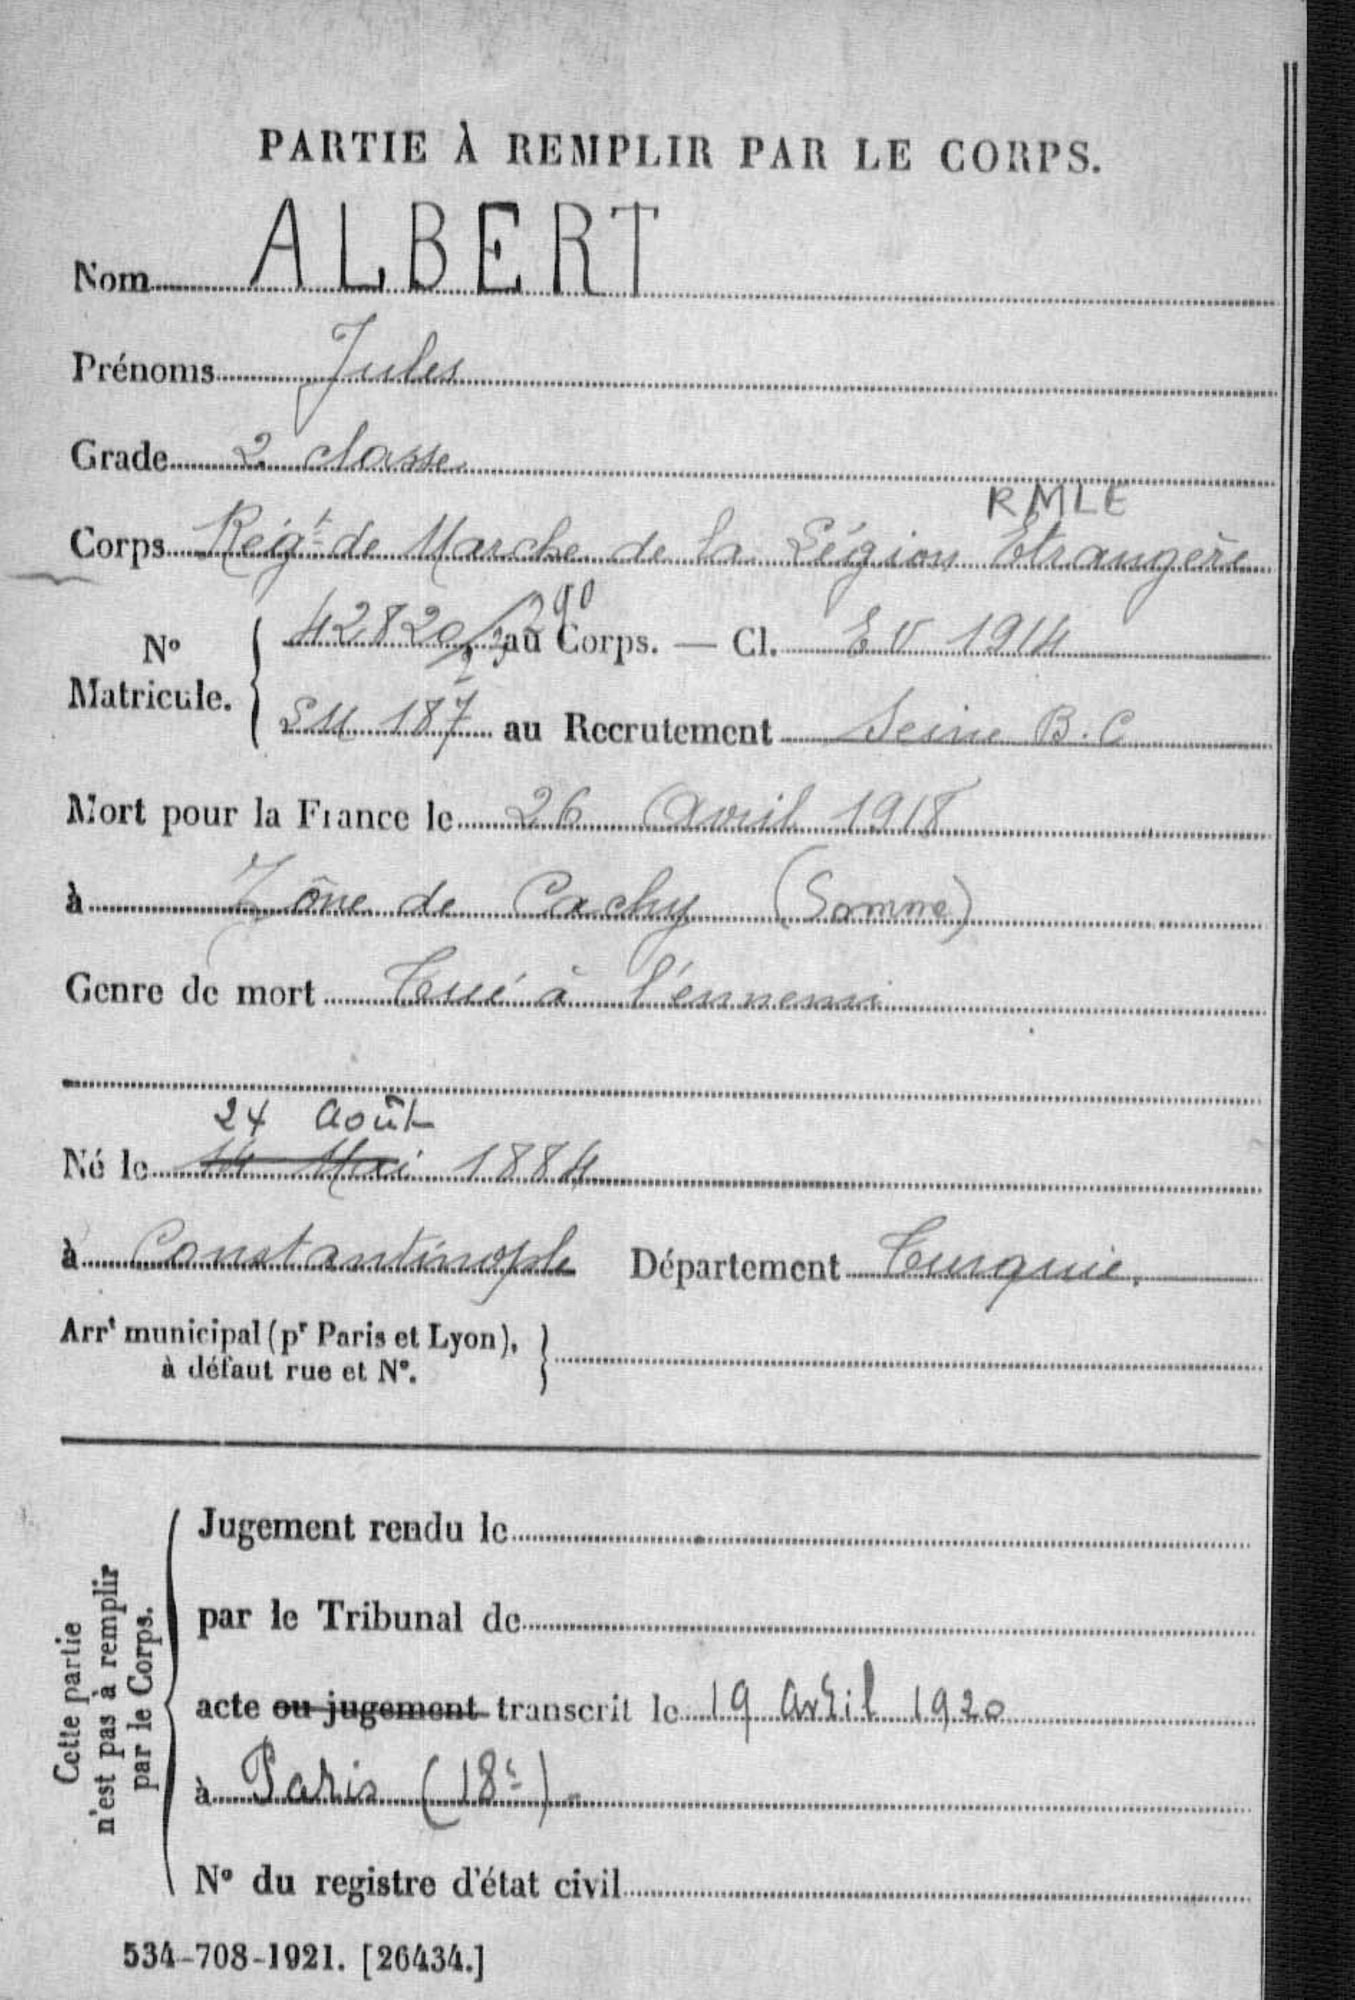 PARTIE À REMPLIR PAR LE CORPS.
Nom ALBERT
Prénoms Jules
Grade 2 classe
RMLE
Corps Régt de Marche de la Légion Etrangère
No Matricule. 42820 au Corps. — Cl. EV 1914
LM 187 au Recrutement Seine B.C
Mort pour la France le 26 Avril 1918
à Zône de Cachy (Somme)
Genre de mort Tué à l'ennemi
24 Août
Né le 14 Mai 1884
à Constantinople Département Turquie.
Arrt municipal (pr Paris et Lyon),
à défaut rue et No.
Cette partie
n'est pas à remplir
par le Corps.
Jugement rendu le
par le Tribunal de
acte ou jugement transcrit le 19 avril 1920
à Paris (18e)
No du registre d'état civil
534-708-1921. [26434.]